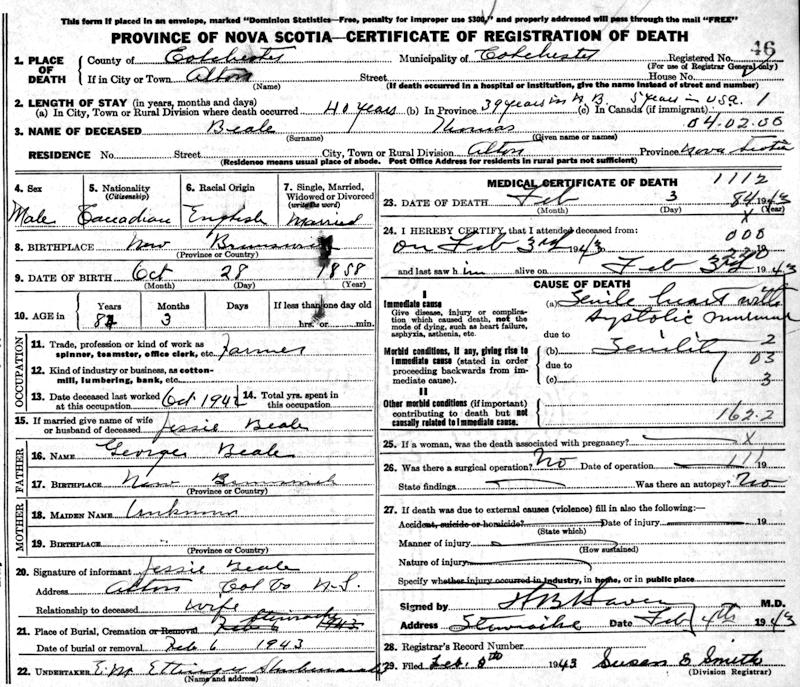 This form if placed in an envelope, marked "Dominion Statistics—Free, penalty for improper use $300," and properly addressed will pass through the mail "FREE"
PROVINCE OF NOVA SCOTIA—CERTIFICATE OF REGISTRATION OF DEATH
46
1. PLACE OF DEATH
County of Colchester Municipality of Colchester Registered No.
(For use of Registrar General only)
If in City or Town Alton Street House No.
(Name) (If death occurred in a hospital or institution, give the name instead of street and number)
2. LENGTH OF STAY (in years, months and days)
(a) In City, Town or Rural Division where death occurred 40 years (b) In Province 39 years in N.B. (c) In Canada (if immigrant) 5 years in USA. 1
04.02.00
3. NAME OF DECEASED Beale Thomas
(Surname) (Given name or names)
RESIDENCE No. Street City, Town or Rural Division Alton Province Nova Scotia
(Residence means usual place of abode. Post Office Address for residents in rural parts not sufficient)
4. Sex
Male
5. Nationality (Citizenship)
Canadian
6. Racial Origin
English
7. Single, Married, Widowed or Divorced (write the word)
Married
8. BIRTHPLACE New Brunswick
(Province or Country)
9. DATE OF BIRTH Oct 28 1858
(Month) (Day) (Year)
10. AGE in Years Months Days If less than one day old
84 3 hrs. or min.
OCCUPATION
11. Trade, profession or kind of work as spinner, teamster, office clerk, etc. Farmer
12. Kind of industry or business, as cotton-mill, lumbering, bank, etc.
13. Date deceased last worked at this occupation Oct 1942
14. Total yrs. spent in this occupation
15. If married give name of wife or husband of deceased Jessie Beale
FATHER
16. NAME George Beale
17. BIRTHPLACE New Brunswick
(Province or Country)
MOTHER
18. MAIDEN NAME Unknown
19. BIRTHPLACE "
(Province or Country)
20. Signature of informant Jessie Beale
Address Alton Col Co N.S.
Relationship to deceased Wife
21. Place of Burial, Cremation or Removal Stewiacke Feb 6 1943
Date of burial or removal Feb 6 1943
22. UNDERTAKER E. M. Ettinger
(Name and address)
MEDICAL CERTIFICATE OF DEATH 1112
23. DATE OF DEATH Feb 3 84 1943
(Month) (Day) (Year)
X
24. I HEREBY CERTIFY, that I attended deceased from: 000
On Feb 3rd 1943 19
and last saw him alive on Feb 3rd 1943
CAUSE OF DEATH
I
Immediate cause
Give disease, injury or complication which caused death, not the mode of dying, such as heart failure, asphyxia, asthenia, etc.
(a) Senile heart with systolic murmur
due to
Morbid conditions, if any, giving rise to immediate cause (stated in order proceeding backwards from immediate cause)
(b) Senility 2
due to 03
(c) 3
II
Other morbid conditions (if important) contributing to death but not causally related to immediate cause.
162.2
25. If a woman, was the death associated with pregnancy? X
26. Was there a surgical operation? No Date of operation 111 19
State findings Was there an autopsy? No
27. If death was due to external causes (violence) fill in also the following:—
Accident, suicide or homicide? Date of injury 19
(State which)
Manner of injury
(How sustained)
Nature of injury
Specify whether injury occurred in industry, in home, or in public place
Signed by M.D.
Address Stewiacke Date Feb 4th 1943
28. Registrar's Record Number
29. Filed Feb. 8th 1943 Susan E Smith
(Division Registrar)